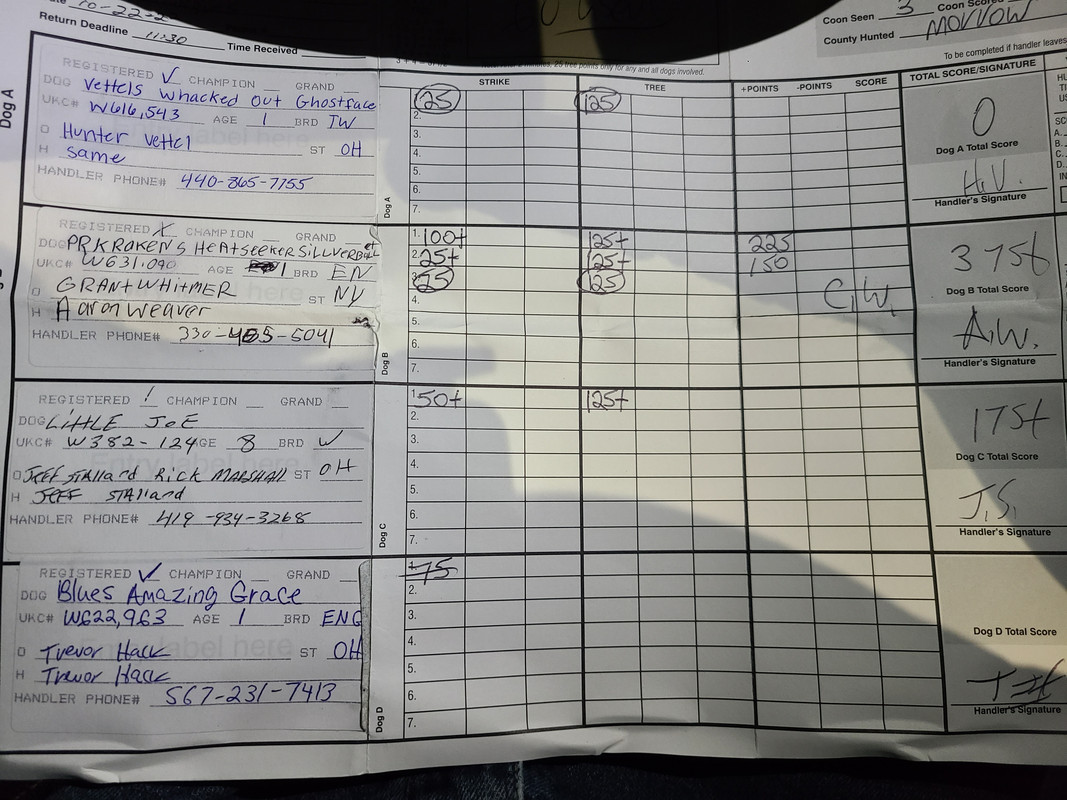 10-22-2
Return Deadline 11:30 Time Received
Coon Seen 3 Coon Scored
County Hunted Morrow
To be completed if handler leaves
25 tree points only for any and all dogs involved.
STRIKE TREE +POINTS -POINTS SCORE TOTAL SCORE/SIGNATURE
Dog A
REGISTERED ✓ CHAMPION GRAND
DOG Vettels Whacked Out Ghostface
UKC# W616,543 AGE 1 BRD TW
O Hunter Vettel ST OH
H Same
HANDLER PHONE# 440-865-7755
Dog A
25 125
2.
3.
4.
5.
6.
7.
0
Dog A Total Score
H.V.
Handler's Signature
REGISTERED X CHAMPION GRAND
DOG PRKROKENS HEATSEEKER SILLVERBULLet
UKC# W631,090 AGE 1 BRD EN
O GRANT WHITMER ST NY
H Aaron Weaver
HANDLER PHONE# 330-465-5041
Dog B
1. 100+ 125+ 225
2. 25+ 125+ 150
3. 25 125
4. C.W.
5.
6.
7.
375+
Dog B Total Score
A.W.
Handler's Signature
REGISTERED / CHAMPION GRAND
DOG LITTLE JOE
UKC# W382-124 AGE 8 BRD W
O JEFF STAllard Rick MARSHALL ST OH
H JEFF STAllard
HANDLER PHONE# 419-934-3268
Dog C
1. 50+ 125+
2.
3.
4.
5.
6.
7.
175+
Dog C Total Score
J.S.
Handler's Signature
REGISTERED ✓ CHAMPION GRAND
DOG Blues Amazing Grace
UKC# W622,963 AGE 1 BRD ENG
O Trevor Hack ST OH
H Trevor Hack
HANDLER PHONE# 567-231-7413
Dog D
1. 75
2.
3.
4.
5.
6.
7.
Dog D Total Score
TH
Handler's Signature